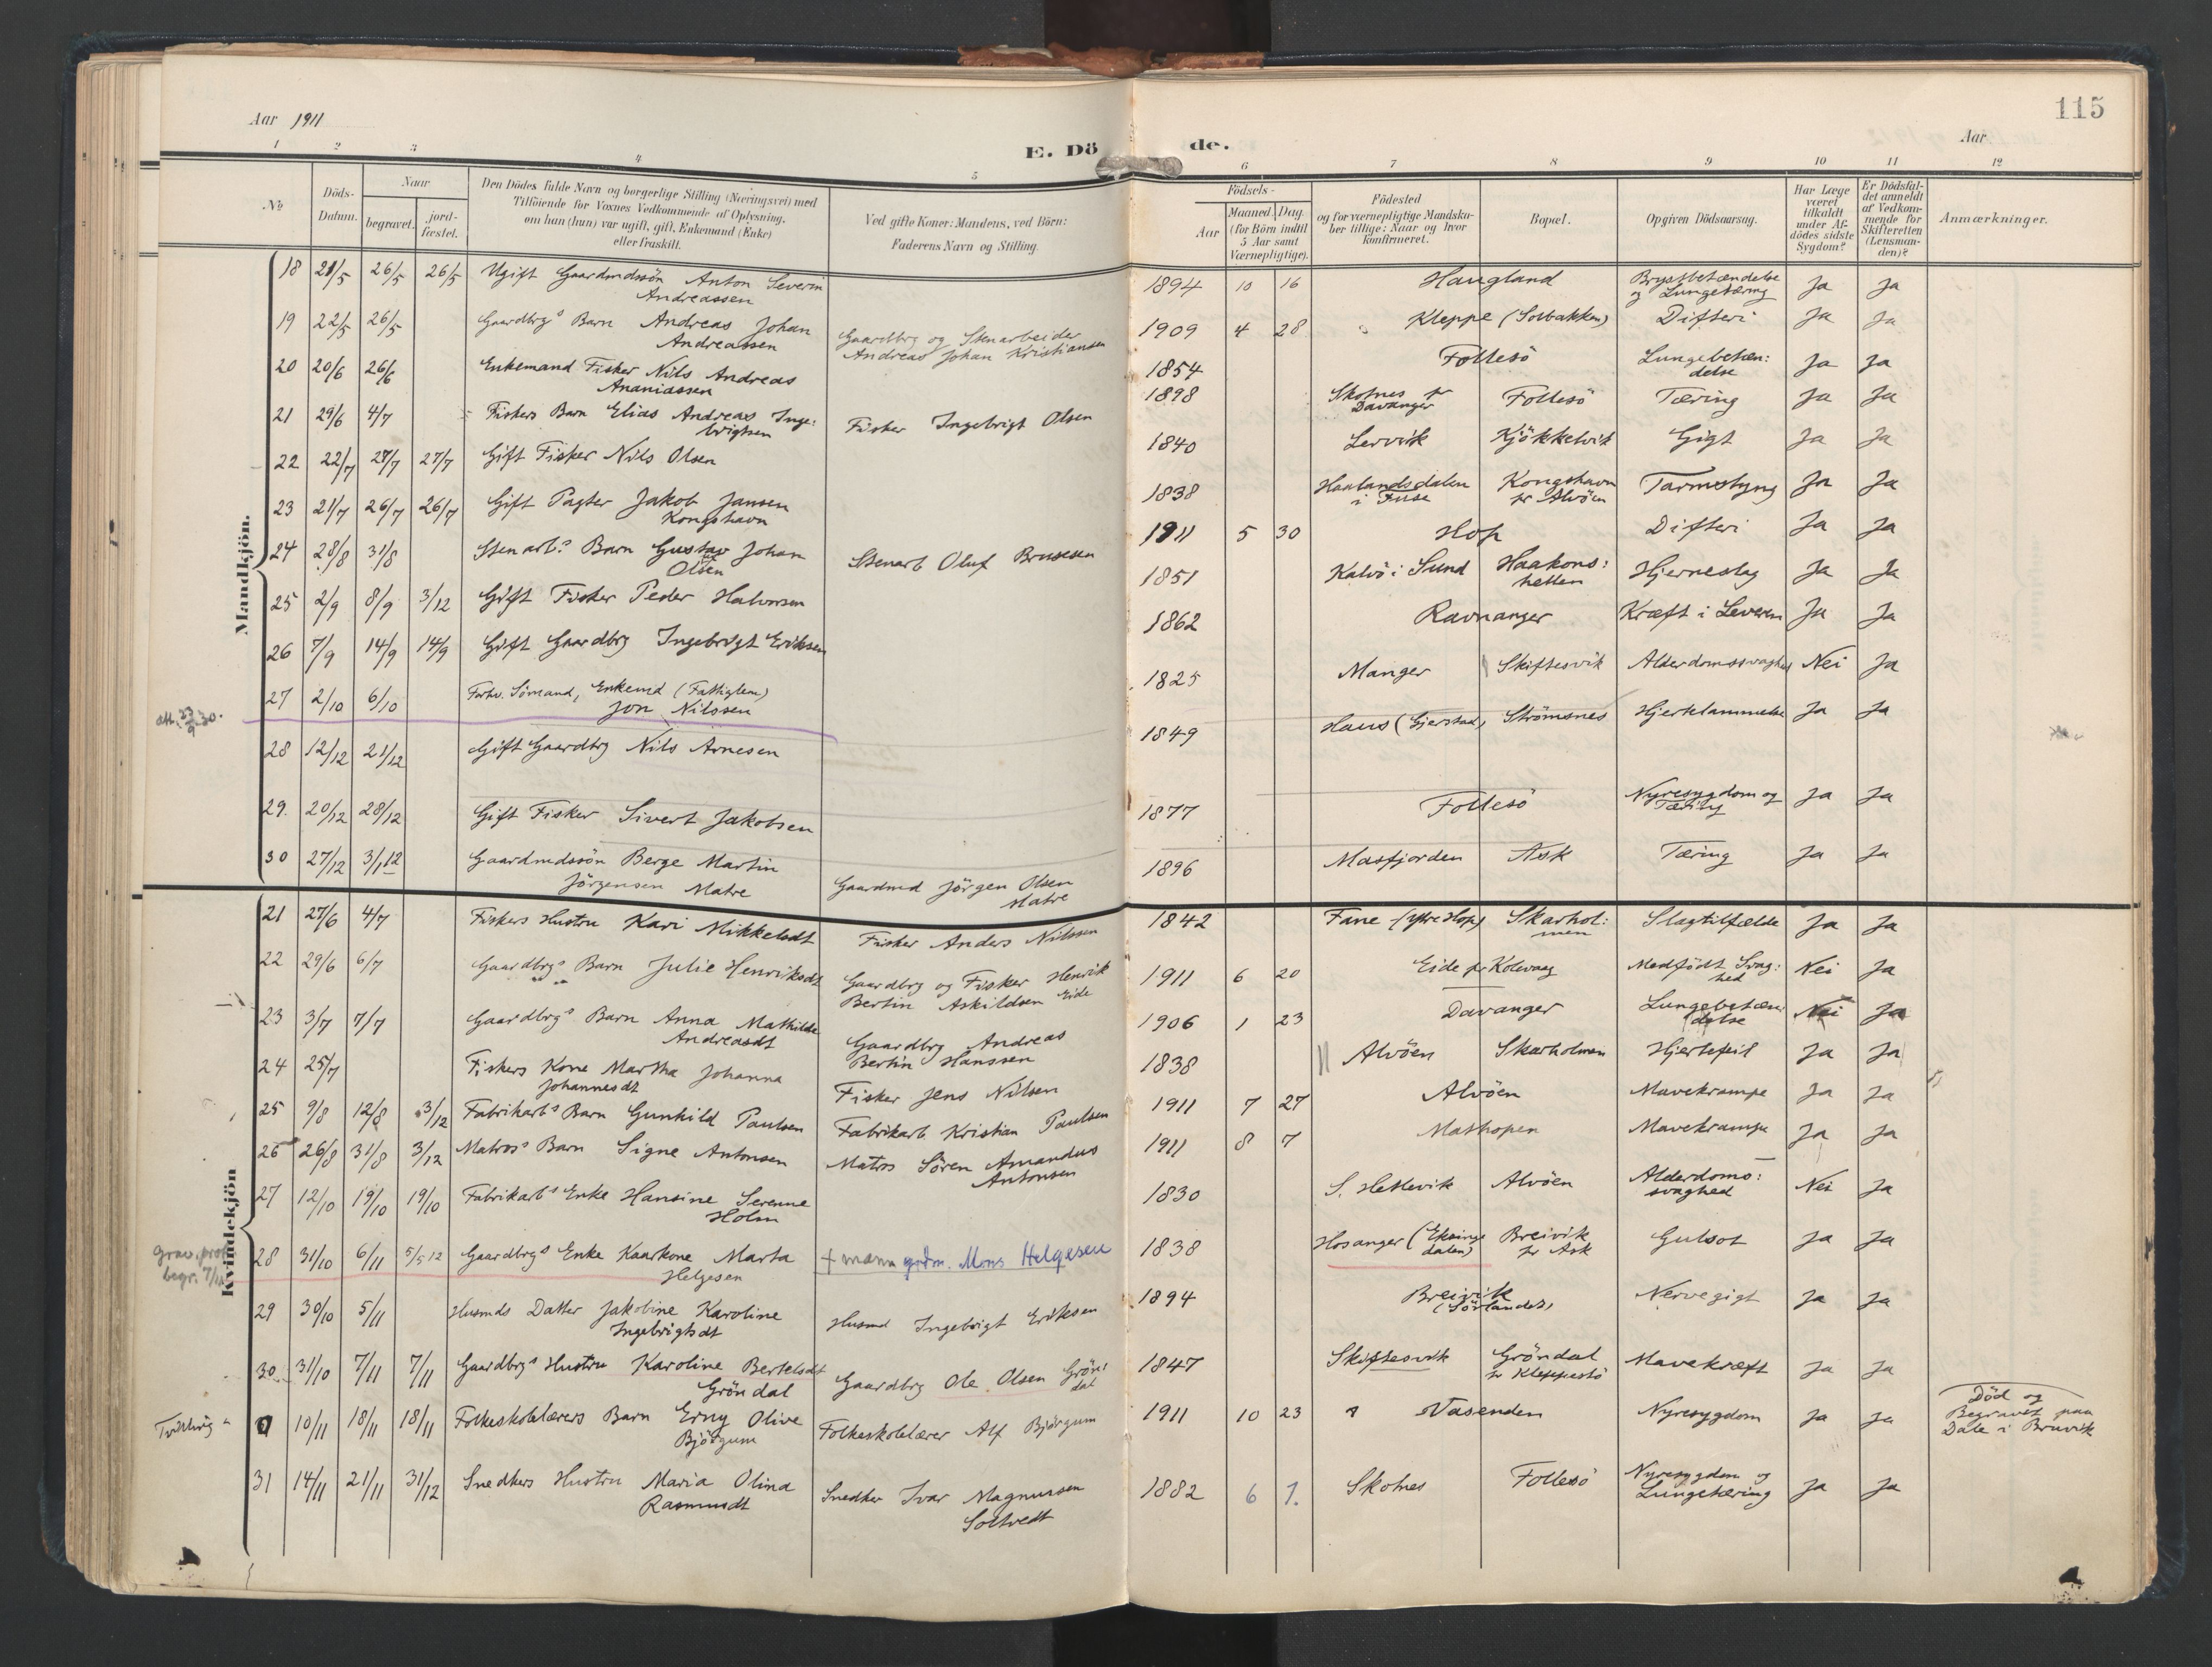 115
Aar 1911
E. Döde.
Aar
1 2 3 4 5 6 7 8 9 10 11 12
No
Döds-Datum.
Naar
begravet.
jord-fæstet.
Den Dödes fulde Navn og borgerlige Stilling (Næringsvei) med
Tilföiende for Voxnes Vedkommende af Oplysning,
om han (hun) var ugift, gift, Enkemand (Enke)
eller fraskilt.
Ved gifte Koner: Mandens, ved Börn:
Faderens Navn og Stilling.
Födsels-
Aar
Maaned. Dag.
(for Börn indtil
5 Aar samt
Værnepligtige).
Födested
og for værnepligtige Mandska-
ber tillige: Naar og hvor
konfirmeret.
Bopæl.
Opgiven Dödsaarsag.
Har Læge
været
tilkaldt
under Af-
dödes sidste
Sygdom?
Er Dödsfal-
det anmeldt
af Vedkom-
mende for
Skifteretten
(Lensman-
den)?
Anmærkninger.
Mandkjön.
18 21/5 26/5 26/5 Ugift Gaardmdssön Anton Severin Andreassen 1894 10 16 Haugland Brystbetændelse og Lungetæring Ja Ja
19 22/5 26/5 Gaardbrgs Barn Andreas Johan Andreassen Gaardbrg og Stenarbeider Andreas Johan Kristiansen 1909 4 28 Kleppe (Solbakken) Difteri Ja Ja
20 20/6 26/6 Enkemand Fisker Nils Andreas Ananiassen 1854 Follesö Lungebetæn: delse Ja Ja
21 29/6 4/7 Fiskers Barn Elias Andreas Inge: brigtsen Fisker Ingebrigt Olsen 1898 Skotnes pr Davanger Follesö Tæring Ja Ja
22 22/7 27/7 27/7 Gift Fisker Nils Olsen 1840 Lervik Kjökkelvik Gigt Ja Ja
23 21/7 26/7 26/7 Gift Pagter Jakob Jansen Kongshavn 1838 Haalandsdalen i Fuse Kongshavn pr Alvöen Tarmslyng Ja Ja
24 28/8 31/8 Stenarbs Barn Gustav Johan Olsen Stenarb Oluf Brusesen 1911 5 30 Hop Difteri Ja Ja
25 2/9 8/9 3/12 Gift Fisker Peder Halvorsen 1851 Kalvö i Sund Haakons: hellen Hjerneslag Ja Ja
26 7/9 14/9 14/9 Gift Gaardbrg Ingebrigt Eriksen 1862 Ravnanger Kræft i Leveren Ja Ja
27 2/10 6/10 Forhv. Sömand, Enkemd (Fattiglem) Jon Nilssen 1825 Manger Skiftesvik Alderdomssvaghed Nei Ja
att. 23/9.30.
28 12/12 21/12 Gift Gaardbrg Nils Arnesen 1849 Haus (Gjerstad) Strömsnes Hjerklammelse Ja Ja
29. 20/12 28/12 Gift Fisker Sivert Jakobsen 1877 Follesö Nyresygdom og Tæring Ja Ja
30 27/12 3/1 12 Gaardmdssön Berge Martin Jörgensen Matre Gaardmd Jörgen Olsen Matre 1896 Masfjorden Ask Tæring Ja Ja
Kvindekjön
21 27/6 4/7 Fiskers Hustru Kari Mikkelsdt Fisker Anders Nilssen 1842 Fane (Ytre Hop) Skarhol: men Slagtilfælde Ja Ja
22 29/6 6/7 Gaardbrgs Barn Julie Henriksdt Gaardbrg og Fisker Henrik Bertin Askildsen Eide 1911 6 20 Eide pr Kolevaag Medfödt Svag: hed Nei Ja
23 3/7 7/7 Gaardbrgs Barn Anna Mathilde Andreasdt Gaardbrg Andreas Bertin Hanssen 1906 1 23 Davanger Lungebetæn: delse Nei Ja
24 25/7 Fiskers Kone Martha Johanna Johannesdt Fisker Jens Nilsen 1838 Alvöen Skarholmen Hjertefeil Ja Ja
25 9/8 12/8 3/12 Fabrikarbs Barn Gunhild Paulsen Fabrikarb Kristian Paulsen 1911 7 27 Alvöen Mavekrampe Ja Ja
26 26/8 31/8 3/12 Matros' Barn Signe Antonsen Matros Sören Amandus Antonsen 1911 8 7 Mathopen Mavekrampe Ja Ja
27 12/10 19/10 19/10 Fabrikarbs Enke Hansine Serenne Holm 1830 S. Hetlevik Alvöen Alderdoms: svaghed Nei Ja
grav.prot. begr. 7/11
28 31/10 6/11 5/5 12 Gaardbrgs Enke Kaarkone Marta Helgesen + mann grdm. Mons Helgesen 1838 Hosanger (Eksinge dalen) Breivik pr Ask Gulsot Ja Ja
29 30/10 5/11 Husmds Datter Jakobine Karoline Ingebrigtsdt Husmd Ingebrigt Eriksen 1894 Breivik (Sörlandet) Nervegigt Ja Ja
30 31/10 7/11 7/11 Gaardbrgs Hustru Karoline Bertelsdt Gröndal Gaardbrg Ole Olsen Grön: dal 1847 Skiftesvik Gröndal pr Kleppestö Mavekræft Ja Ja
Tvilling
0 10/11 18/11 18/11 Folkeskolelærers Barn Erny Olive Björgum Folkeskolelærer Alf Björgum 1911 10 23 Vasenden Nyresygdom Ja Ja Död og Begravet paa Dale i Bruvik
31 14/11 21/11 31/12 Snedkers Hustru Maria Olina Rasmusdt Snedker Ivar Magnussen Soltvedt 1882 6 1. Skotnes Follesö Nyresygdom og Lungetæring Ja Ja